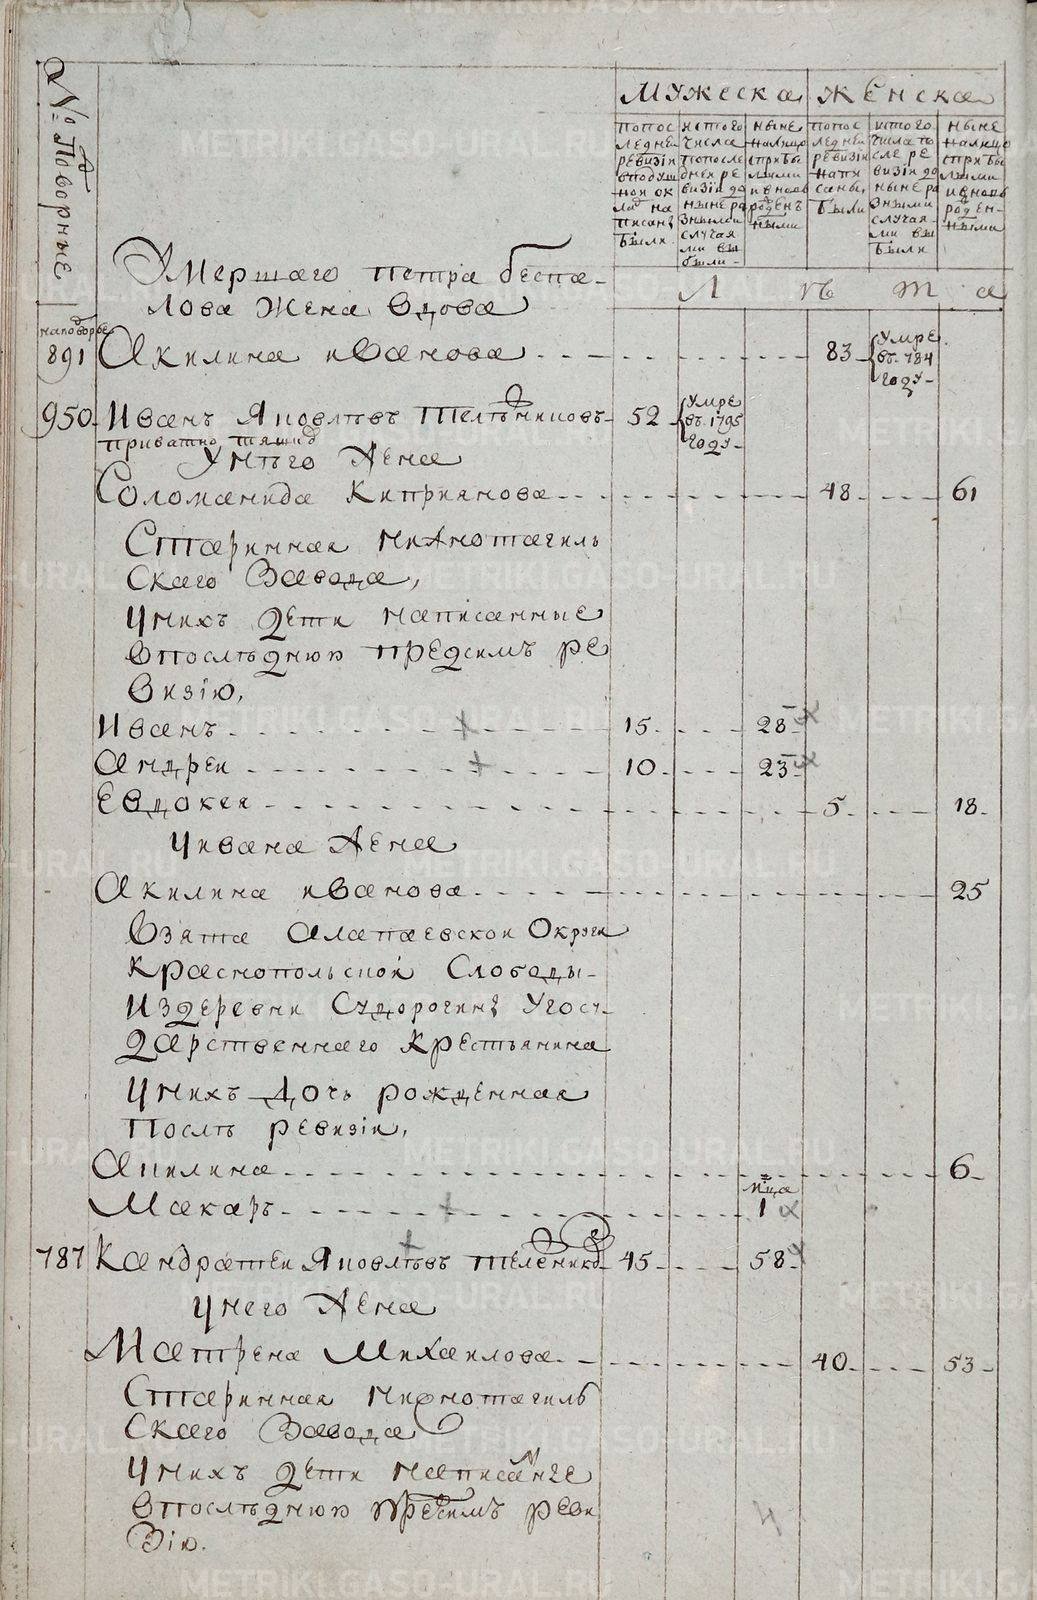 № Подворные
Мужеска
Женска
попос
ледней
ревизiи
вподуш
ной ок
лад на
писан
были
истого
числа
попосле
дней ре
визiи до
ныне ра
зными
случая
ми вы
были
ныне
налицо
сприбы
лыми
ивновь
рожден
ными
попос
ледней
ревизiи
напи
саны
были
истого
числа по
сле ре
визiи до
ныне ра
зными
случая
ми вы
были
ныне
налицо
сприбы
лыми
ивновь
рожден-
ными
Лѣта
Умершаго петра беспа-
лова Жена вдова
891 Акилина иванова 83 Умре въ. 784 году
950 Иванъ Яковлѣвъ Телѣнковъ 52 Умре въ. 1795 году
Унѣго Жена
Соломанида Киприянова 48 61
Старинная нижнотагиль
скаго Завода,
Унихъ дети написанные
впослѣднюю предсимъ ре
визiю,
Иванъ 15 28
Андреи 10 23
Евдокея 5 18
Уивана Жена
Акилина иванова 25
Взята Алапаевской Округи
Краснопольской Слободы
Издеревни Сударогиной Угосу-
дарственнаго крестьянина
Унихъ Дочь рожденная
Послѣ ревизiи,
Акилина 6
Макаръ м-ца 1
787 Кандратеи Яковлѣвъ Теленков 45 58
Унего Жена
Матрена Михаилова 40 53
Старинная нижнотагиль
скаго Завода
Унихъ дети написанные
впослѣднюю предсимъ реви
зiю.
METRIKI.GASO-URAL.RU